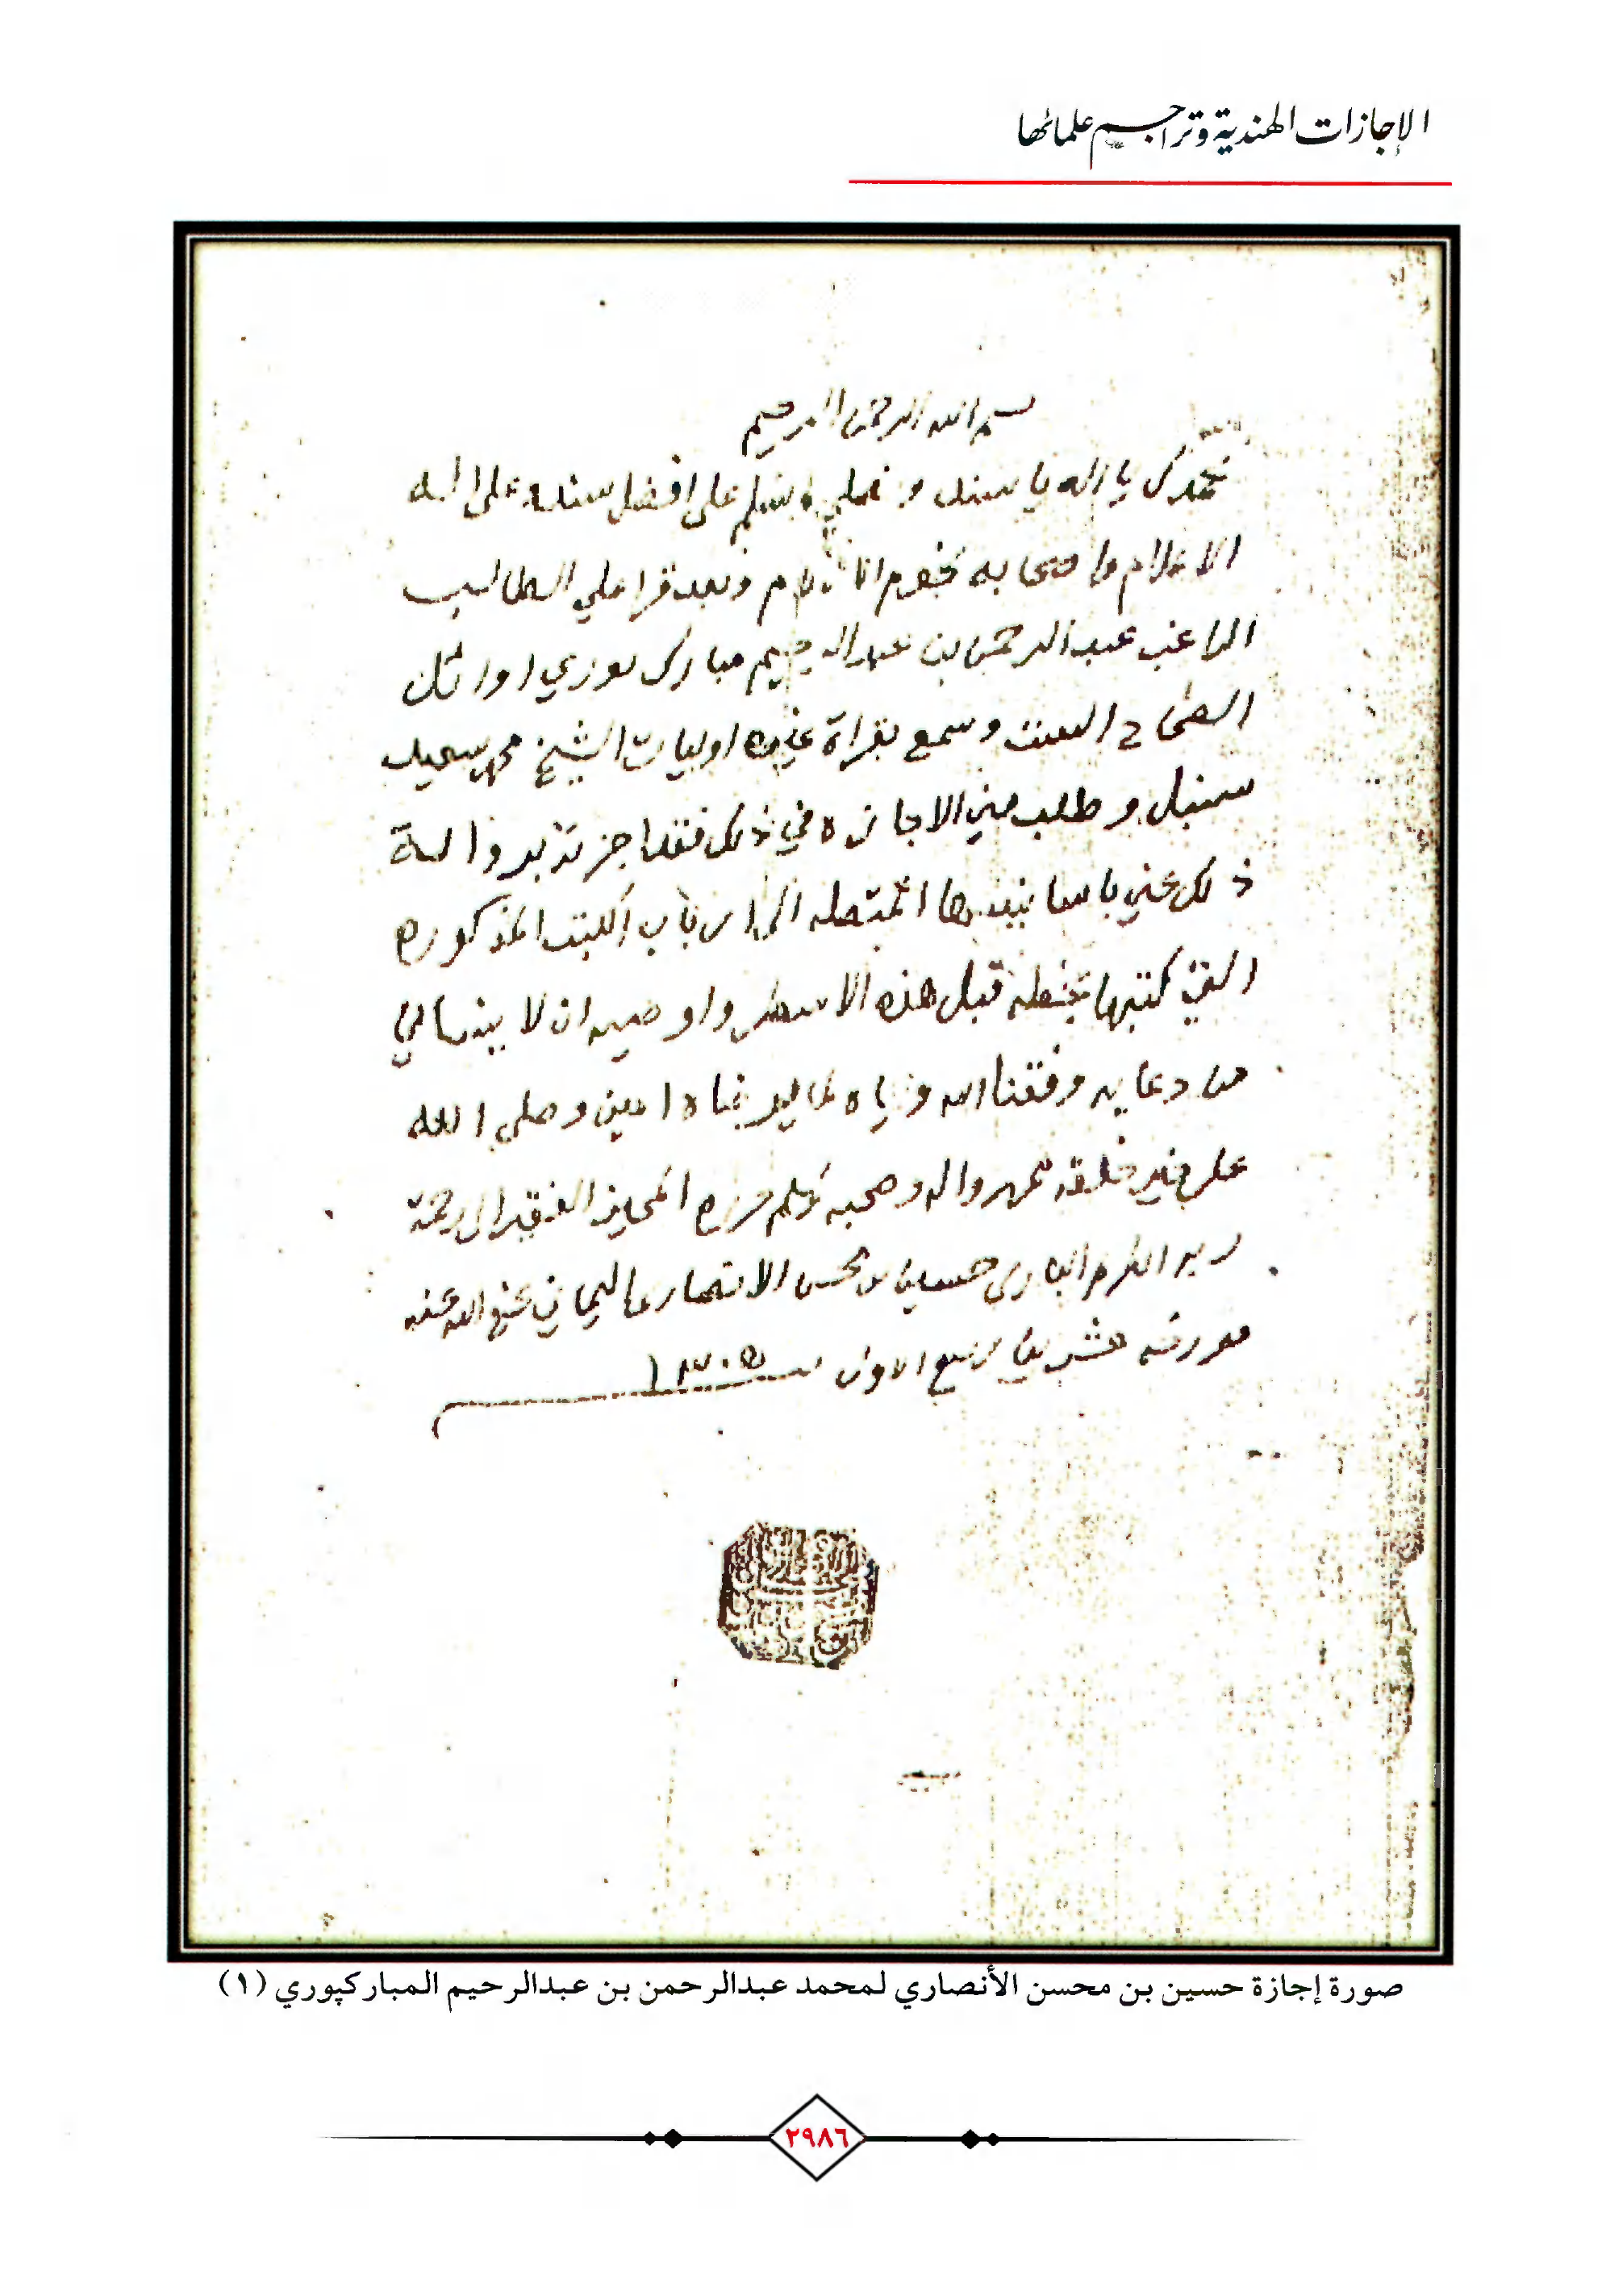 الإجازات الهندية وتراجم علمائها
بسم الله الرحمن الرحيم
نحمدك يا اله يا سند ونصلي ونسلم على افضل سند وعلى اله
الاعلام واصحابه نجوم الظلام وبعد قرا علي الطالب
الراغب عبد الرحمن بن عبد الرحيم مباركفوري اوائل
الصحاح الست وسمع بقراة غيره اوليات الشيخ محمد سعيد
سنبل وطلب مني الاجازه في ذلك فقد اجزته برواية
ذلك عني باسانيدها المتصله الى ارباب الكتب المذكوره
التي كتبها بخطه قبل هذه الاسطر واوصيه ان لا ينساني
من دعايه وفقنا الله واياه لما يرضاه امين وصلى الله
على خير خلقه محمد واله وصحبه وسلم حرره المجيز الفقير الى رحمة
ربه الكريم الباري حسين بن محسن الانصاري اليماني عفى الله عنه
مورخه عشرين ربيع الاول سنه ١٣٠٥
صورة إجازة حسين بن محسن الأنصاري لمحمد عبدالرحمن بن عبدالرحيم المباركپوري (١)
٢٩٨٦